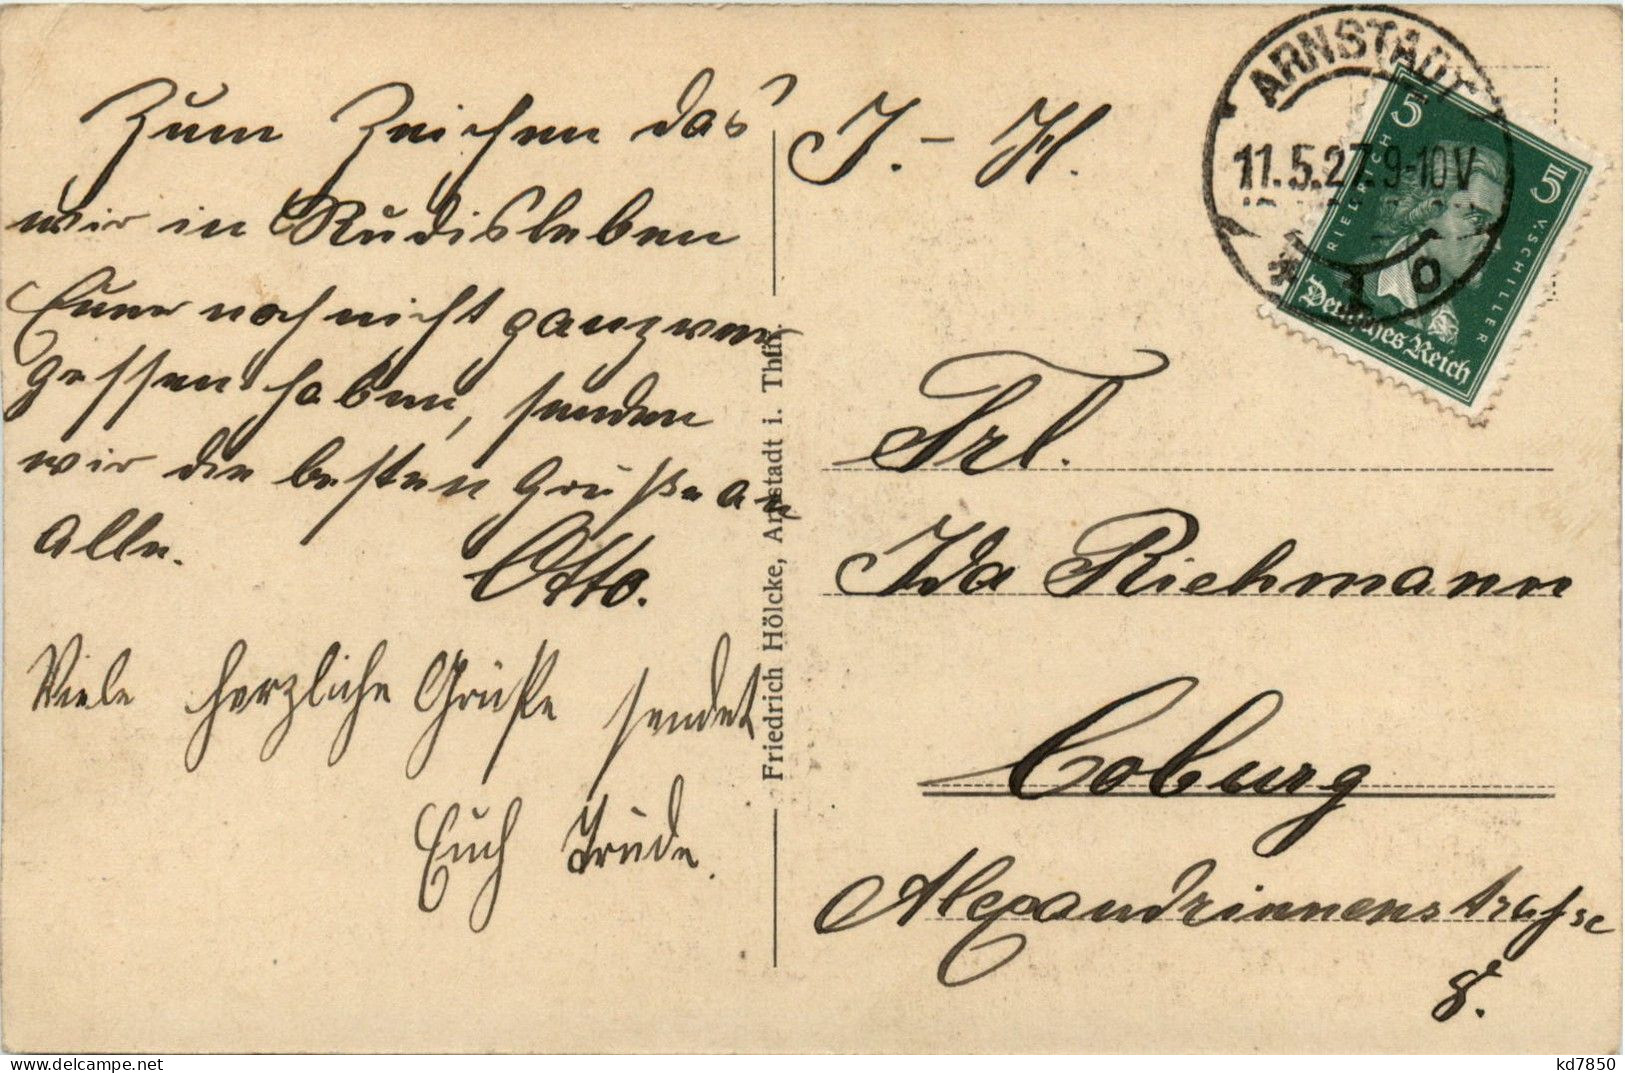 Zum Zeichen das
wir in Rudisleben
Euer noch nicht ganz ver
gessen haben, senden
wir die besten Grüße an
alle.
Otto.
Viele herzliche Grüße sendet
Euch Trude.
Friedrich Hölcke, Arnstadt i. Thür.
J. - H.
ARNSTADT
11.5.27.9-10V
* 1 o
5 5
FRIEDRICH V. SCHILLER
Deutsches Reich
Frl.
Ida Riehmann
Coburg
Alexandrinenstrasse
8.
kd7850